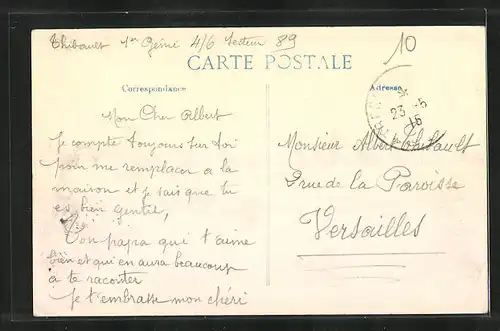 Thibault 1er Génie 4/6 Secteur 89
10
CARTE POSTALE
Correspondance
Adresse
23 - 5
16
Mon Cher Albert
Je compte toujours sur toi
pour me remplacer a la
maison et je sais que tu
es bien gentil,
Ton papa qui t'aime
bien et qui en aura beaucoup
a te raconter
Je t'embrasse mon chéri
Monsieur Albert Thibault
rue de la Paroisse
Versailles